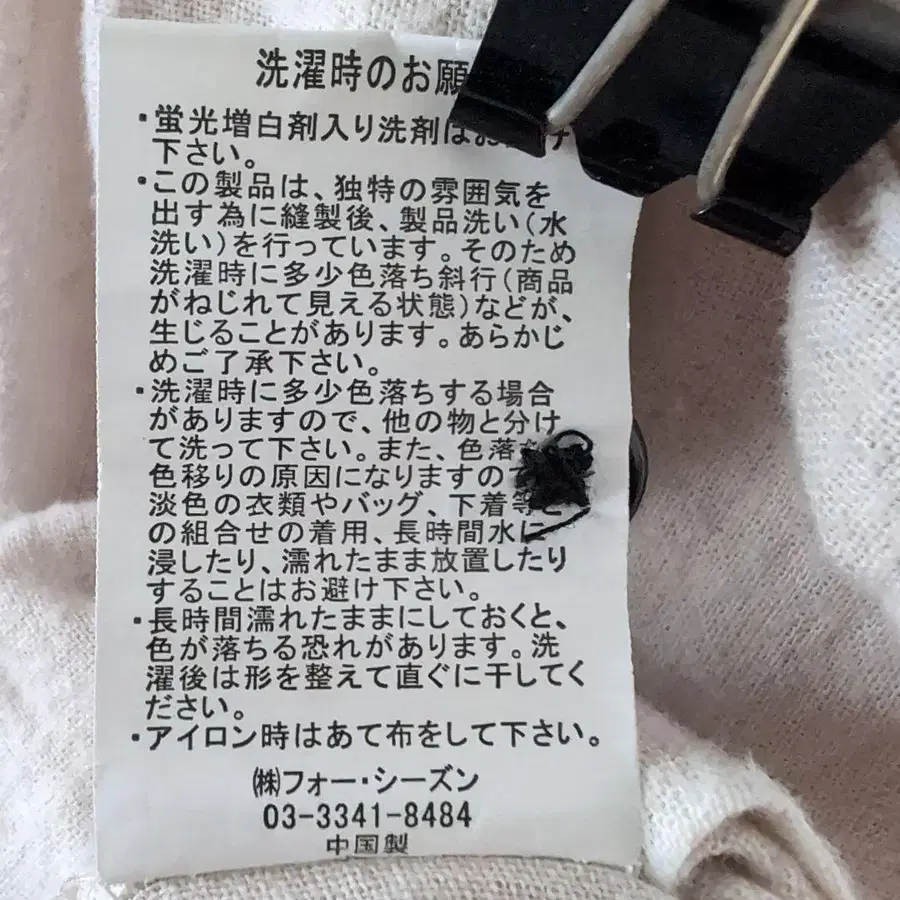 洗濯時のお願
・蛍光増白剤入り洗剤はお
下さい。
・この製品は、独特の雰囲気を
出す為に縫製後、製品洗い(水
洗い)を行っています。そのため
洗濯時に多少色落ち斜行(商品
がねじれて見える状態)などが、
生じることがあります。あらかじ
めご了承下さい。
・洗濯時に多少色落ちする場合
がありますので、他の物と分け
て洗って下さい。また、色落
色移りの原因になりますので
淡色の衣類やバッグ、下着等
の組合せの着用、長時間水に
浸したり、濡れたまま放置したり
することはお避け下さい。
・長時間濡れたままにしておくと、
色が落ちる恐れがあります。洗
濯後は形を整えて直ぐに干してく
ださい。
・アイロン時はあて布をして下さい。
㈱フォー・シーズン
03-3341-8484
中国製